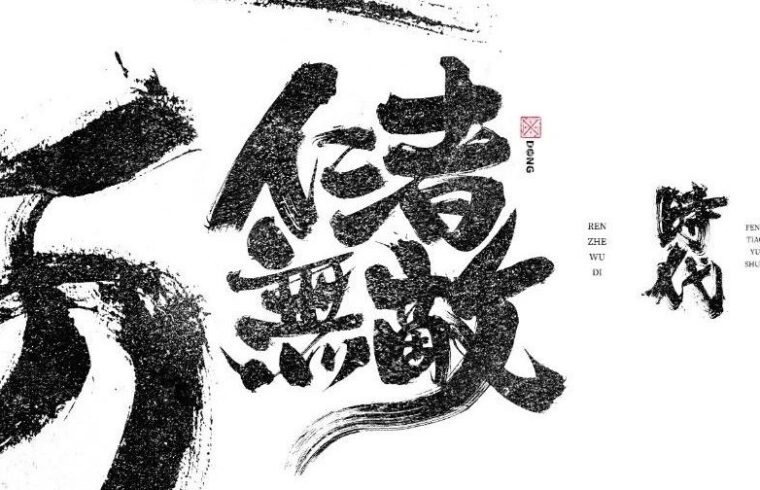 仁者
無敵
DONG
REN
ZHE
WU
DI
時代
FEN
TIAO
YU
SHU